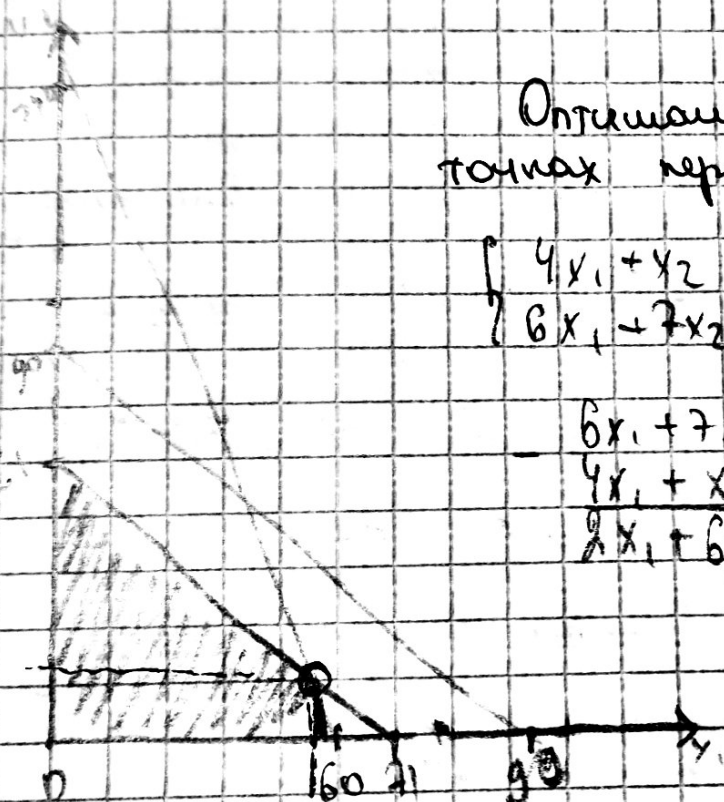 Оптимал
точках пер
4x₁ + x₂
6x₁ + 7x₂
6x₁ + 7
4x₁ + x
2x₁ + 6
90
0 60 71 99 x₁